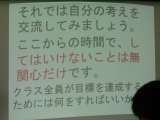 それでは自分の考えを
交流してみましょう。
ここからの時間で、し
てはいけないことは無
関心だけです。
クラス全員が目標を達成する
ためには何をすればいいか